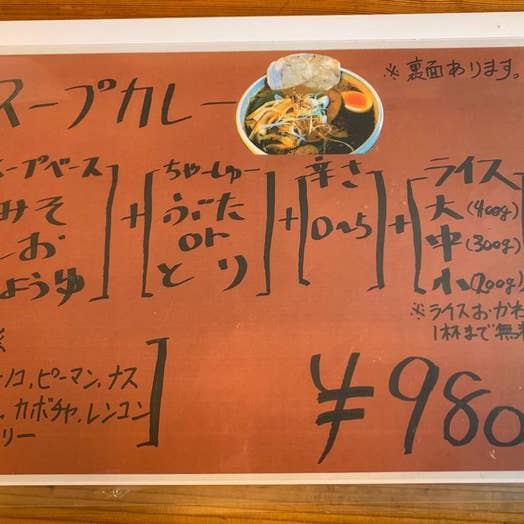 ※裏面あります。
スープカレー
ープベース
みそ
しお
ょうゆ
+
ちゃーしゅー
ぶた
or
とり
+
辛さ
0〜5
+
ライス
大(400g)
中(300g)
小(200g)
※ライスおかわ
1杯まで無料
ノコ,ピーマン,ナス
カボチャ,レンコン
リー
¥980